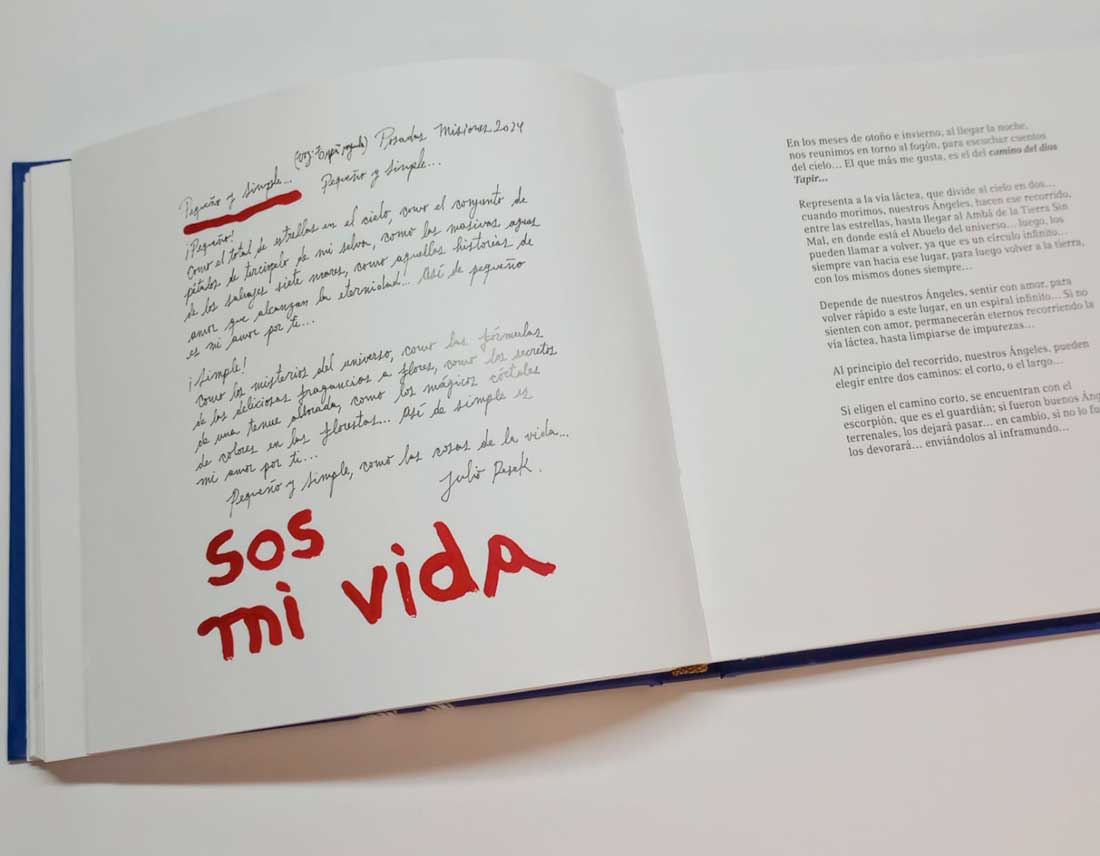 Pequeño y simple... Posadas Misiones 2024
Pequeño y simple...
¡Pequeño!
Como el total de estrellas en el cielo, como el conjunto de
pétalos de terciopelo de mi selva, como las masivas aguas
de los salvajes siete mares, como aquellas historias de
amor que alcanzan la eternidad... Así de pequeño
es mi amor por ti...
¡Simple!
Como los misterios del universo, como las fórmulas
de las deliciosas fragancias a flores, como los secretos
de una tenue alborada, como los mágicos cócteles
de colores en las florestas... Así de simple es
mi amor por ti...
Pequeño y simple, como las cosas de la vida...
Julio
sos
mi vida
En los meses de otoño e invierno, al llegar la noche,
nos reunimos en torno al fogón, para escuchar cuentos
del cielo... El que más me gusta, es el del camino del dios
Tapir...
Representa a la vía láctea, que divide al cielo en dos...
cuando morimos, nuestros Ángeles, hacen ese recorrido,
entre las estrellas, hasta llegar al Ambá de la Tierra Sin
Mal, en donde está el Abuelo del universo... luego, los
pueden llamar a volver, ya que es un círculo infinito...
siempre van hacia ese lugar, para luego volver a la tierra,
con los mismos dones siempre...
Depende de nuestros Ángeles, sentir con amor, para
volver rápido a este lugar, en un espiral infinito... Si no
sienten con amor, permanecerán eternos recorriendo la
vía láctea, hasta limpiarse de impurezas...
Al principio del recorrido, nuestros Ángeles, pueden
elegir entre dos caminos: el corto, o el largo...
Si eligen el camino corto, se encuentran con el
escorpión, que es el guardián; si fueron buenos Áng
terrenales, los dejará pasar... en cambio, si no lo fu
los devorará... enviándolos al inframundo...